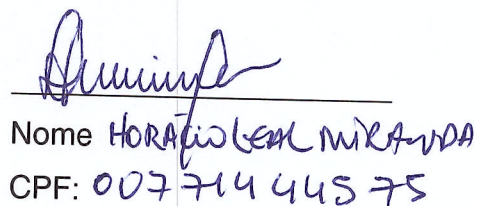 Nome HORÁCIO LEAL MIRANDA
CPF: 007714 44575